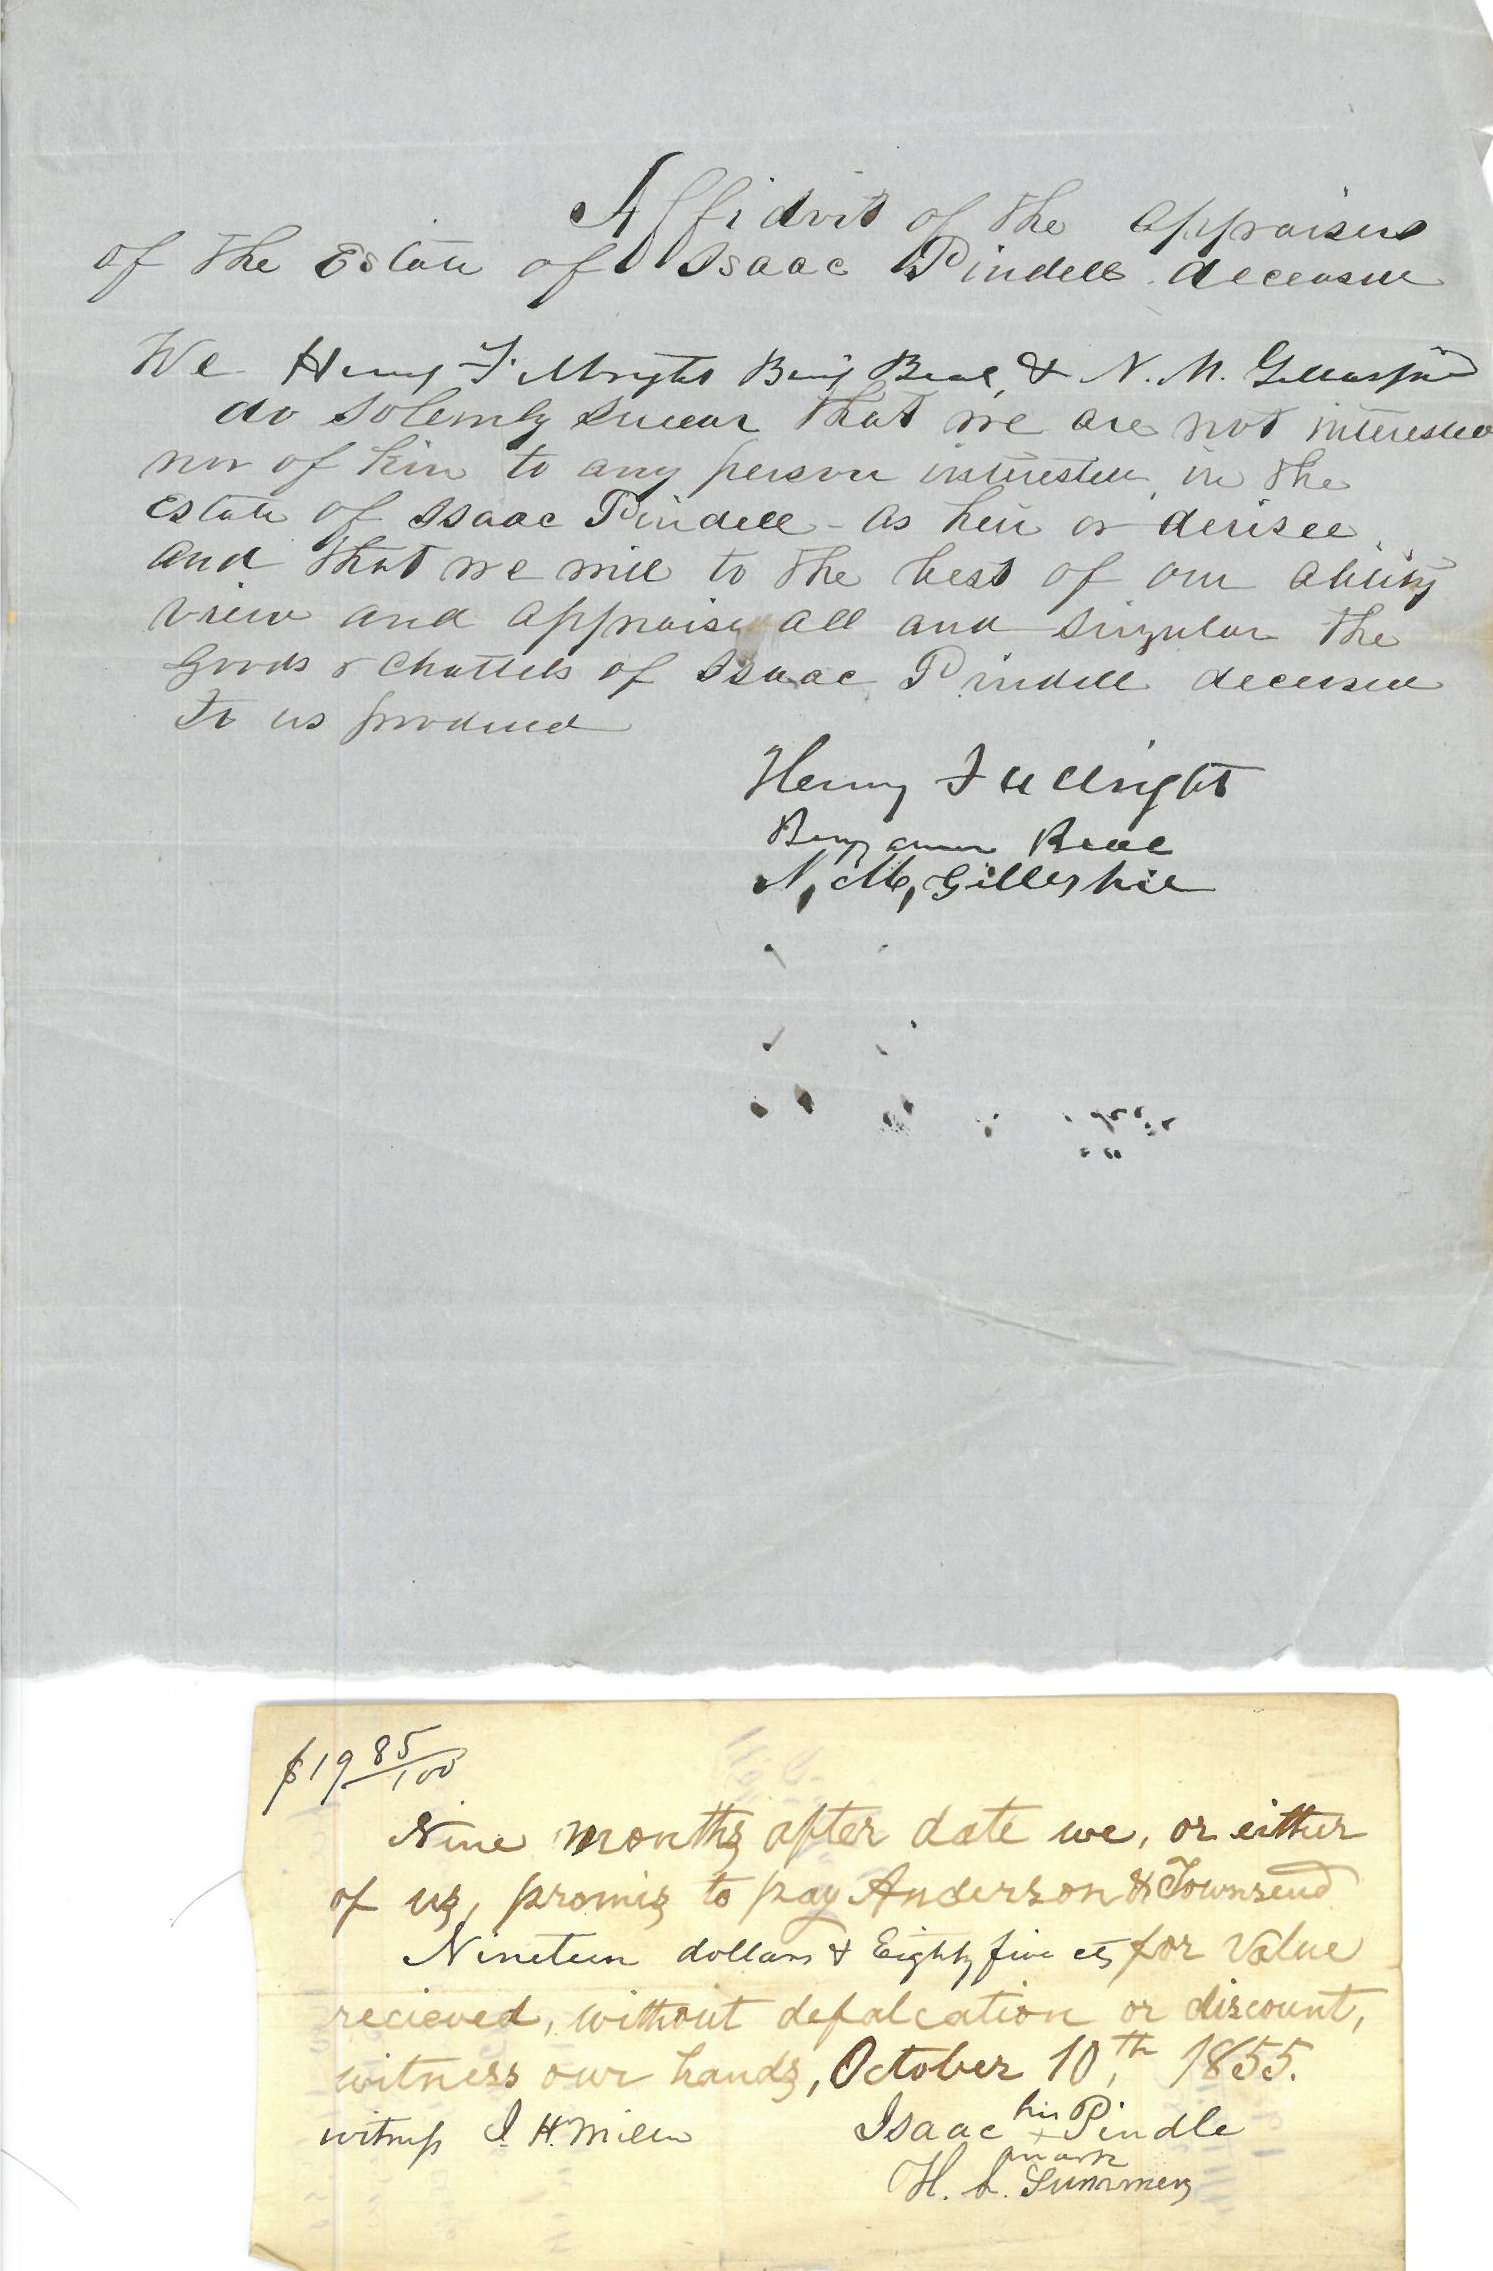 Affidvit of the appraisers
of the Estate of Isaac Pindell deceased
We Henry F Wright Benj Beal, & N. M. Gillaspie
do Solemnly Swear that we are not interested
nor of kin to any person interested in the
Estate of Isaac Pindell - as heir or devisee
and that we will to the best of our ability
view and appraise all and Singular the
Goods & Chattels of Isaac Pindell deceased
to us produced
Henry F Wright
Benjamin Beal
N, M, Gillespie
$19 85/100
Nine months after date we, or either
of us, promis to pay Anderson & Townsend
Nineteen dollars & Eighty five cts for Value
recieved, without defalcation or discount,
witness our hands, October 10,th 1855.
witness J. H. Miller Isaac his x mark Pindle
H. L. Summers